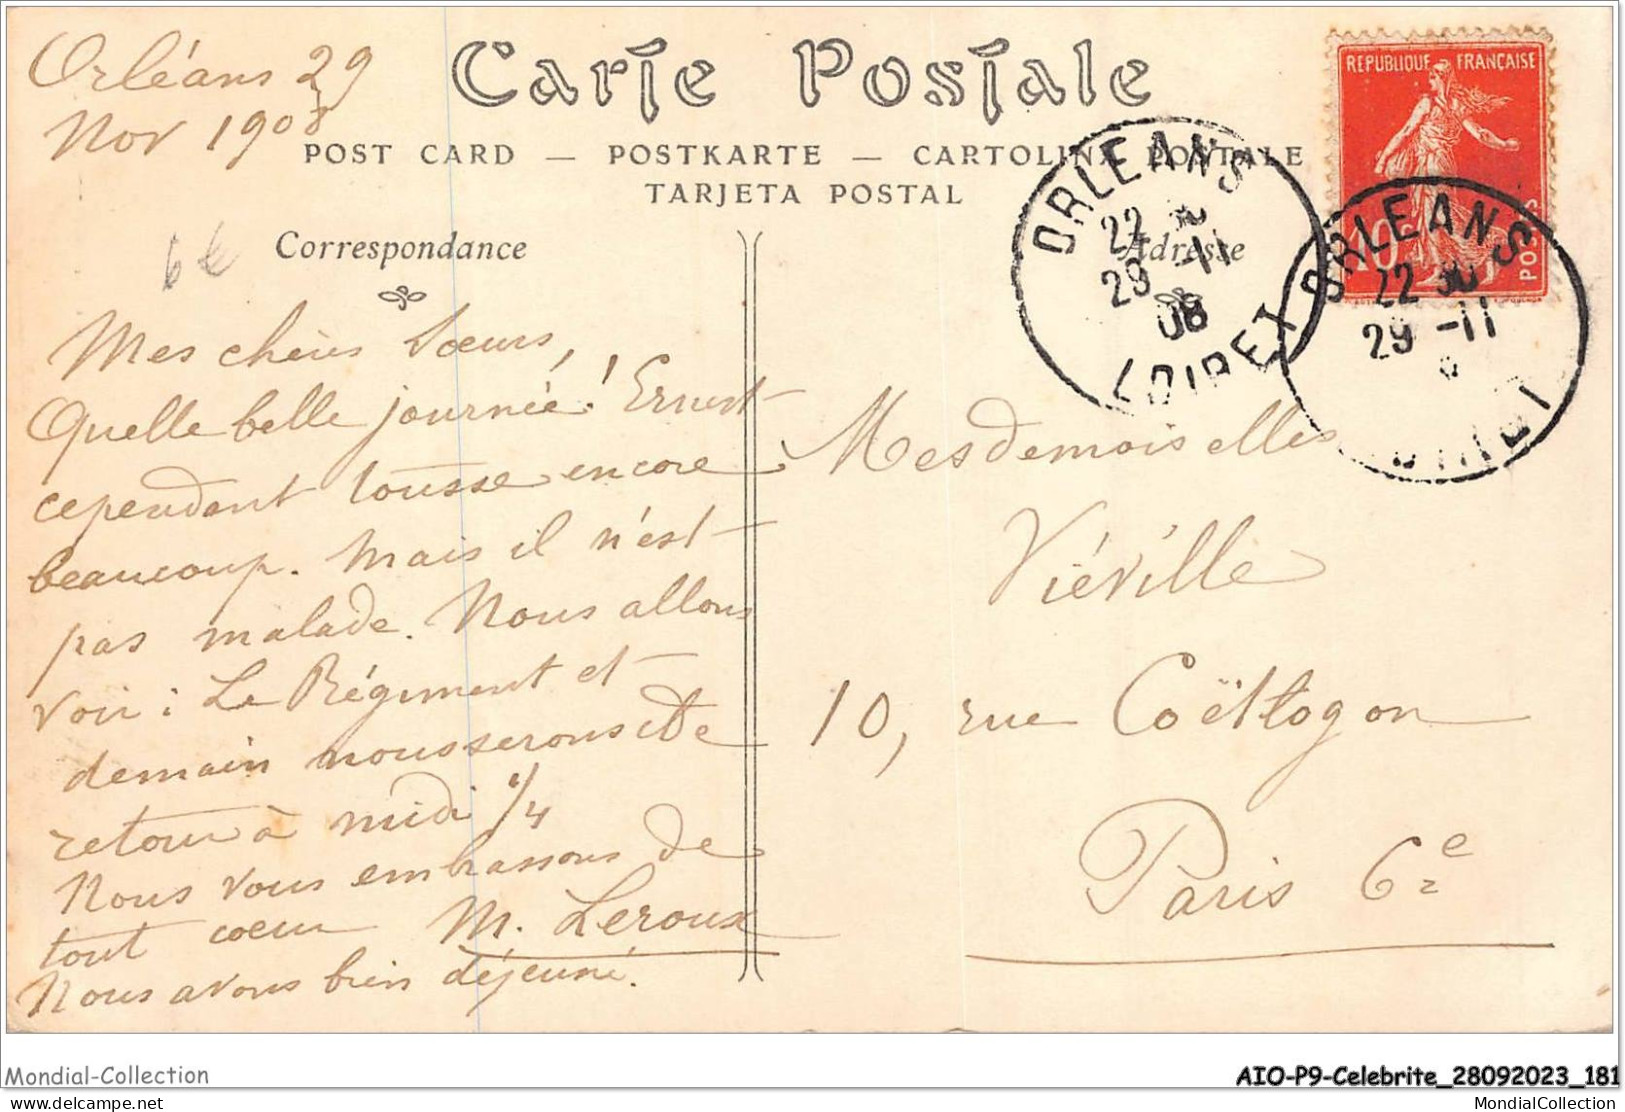 Orléans 29
Nov 1908
Carte Postale
POST CARD — POSTKARTE — CARTOLINA POSTALE
TARJETA POSTAL
6€
Correspondance
Adresse
REPUBLIQUE FRANÇAISE
10c
POSTES
ORLEANS
22 30
29 -11
08
LOIRET
ORLEANS
22 30
29 -11
LOIRET
Mes chères Sœurs,
Quelle belle journée! Ernest
cependant tousse encore
beaucoup. Mais il n'est
pas malade. Nous allons
voir : Le Régiment et
demain nous serons de
retour à midi 1/4
Nous vous embrassons de
tout cœur M. Leroux
Nous avons bien déjeuné.
Mesdemoiselles
Viéville
10, rue Coëtlogon
Paris 6e
Mondial-Collection
AIO-P9-Celebrite_28092023_181
delcampe.net
MondialCollection